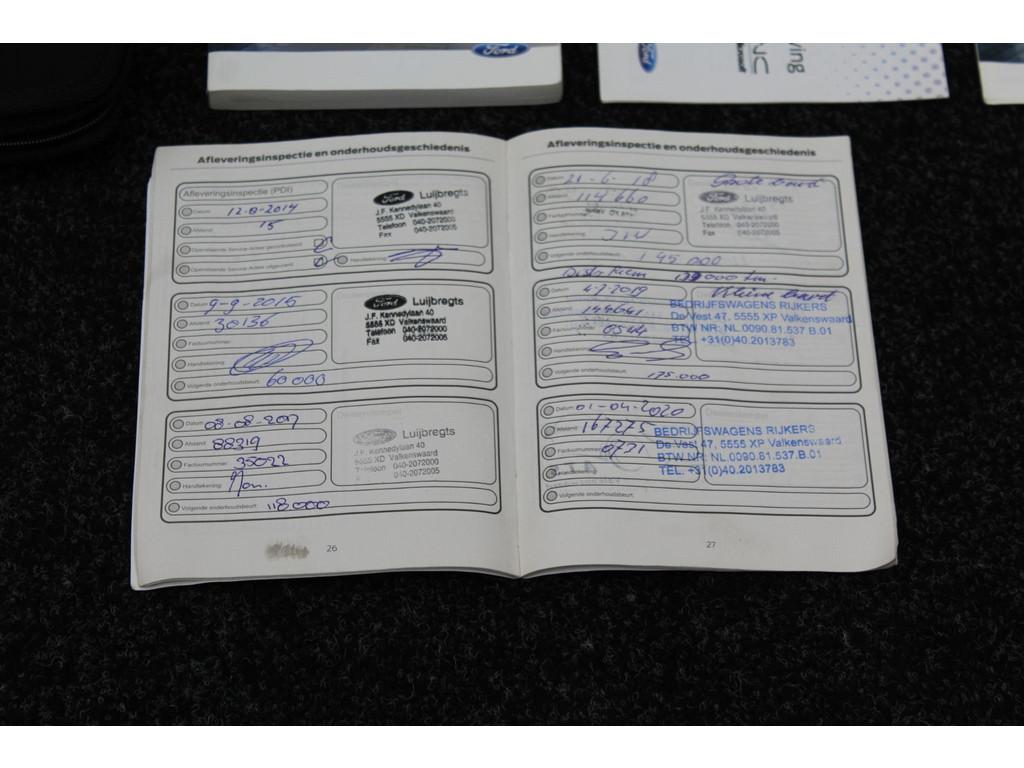 Ford
Ford
ving
Afleveringsinspectie en onderhoudsgeschiedenis
Afleveringsinspectie (PDI)
Datum 12-8-2014
Afstand 15
Handtekening
Ford Luijbregts
J.F. Kennedylaan 40
5555 XD Valkenswaard
Telefoon 040-2072000
Fax
Datum 9-9-2016
Afstand 30136
Factuurnummer
Handtekening
Volgende onderhoudsbeurt 60000
Ford Luijbregts
J.F. Kennedylaan 40
5555 XD Valkenswaard
Telefoon 040-2072000
Fax 040-2072005
Datum 08-08-2017
Afstand 88319
Factuurnummer 35022
Handtekening
Volgende onderhoudsbeurt 118.000
Luijbregts
J.F. Kennedylaan 40
5555 XD Valkenswaard
Telefoon 040-2072000
Fax 040-2072005
26
Afleveringsinspectie en onderhoudsgeschiedenis
Datum 21-6-18
Afstand 114660
Factuurnummer
Handtekening
Volgende onderhoudsbeurt 145000
Grote beurt
Ford Luijbregts
J.F. Kennedylaan 40
5555 XD Valkenswaard
Telefoon 040-2072000
Fax 040-2072005
Distr Riem 000 km
Datum 4-7-2019
Afstand 144641
Factuurnummer 0544
Handtekening
Volgende onderhoudsbeurt 175.000
Kleine beurt
BEDRIJFSWAGENS RIJKERS
De Vest 47, 5555 XP Valkenswaard
BTW NR: NL.0090.81.537.B.01
TEL. +31(0)40.2013783
Datum 01-04-2020
Afstand 167275
Factuurnummer 0731
Handtekening
Volgende onderhoudsbeurt
Dealerstempel
BEDRIJFSWAGENS RIJKERS
De Vest 47, 5555 XP Valkenswaard
BTW NR: NL.0090.81.537.B.01
TEL. +31(0)40.2013783
27